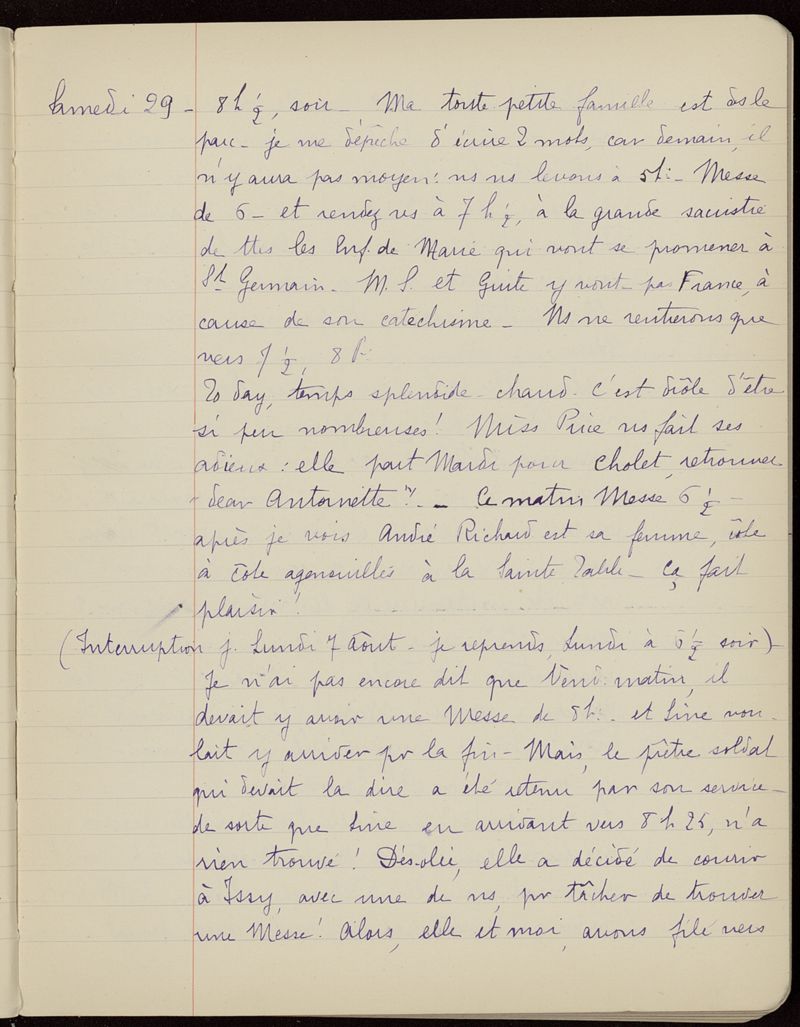 Samedi 29 - 8h ½, soir - Ma toute petite famille est ds le
parc - je me dépêche d'écrire 2 mots, car demain, il
n'y aura pas moyen : ns ns levons à 5h : - Messe
de 6 - et rendez vs à 7 h ½, à la grande sacristie
de ttes les Enf. de Marie qui vont se promener à
St Germain - M. S. et Guite y vont - pas France, à
cause de son catéchisme - Ns ne rentrerons que
vers 7 ½, 8 h
To day, temps splendide - chaud. C'est drôle d'être
si peu nombreuses ! Miss Price ns fait ses
adieux : elle part Mardi pour Cholet, retrouver
"dear Antoinette" . - Ce matin Messe 6 ½ -
après je vois André Richard est sa femme, côte
à côte agenouillés à la Sainte Table - Ça fait
plaisir !
(Interruption j. Lundi 7 Août - je reprends, Lundi à 6 ½ soir) -
Je n'ai pas encore dit que Vend : matin, il
devait y avoir une Messe de 8h : - et Line vou-
lait y arriver pr la fin - Mais, le prêtre soldat
qui devait la dire a été retenu par son service -
de sorte que Line en arrivant vers 8 h 25, n'a
rien trouvé ! Désolée, elle a décidé de courir
à Issy, avec une de ns, pr tâcher de trouver
une Messe ! Alors, elle et moi, avons filé vers